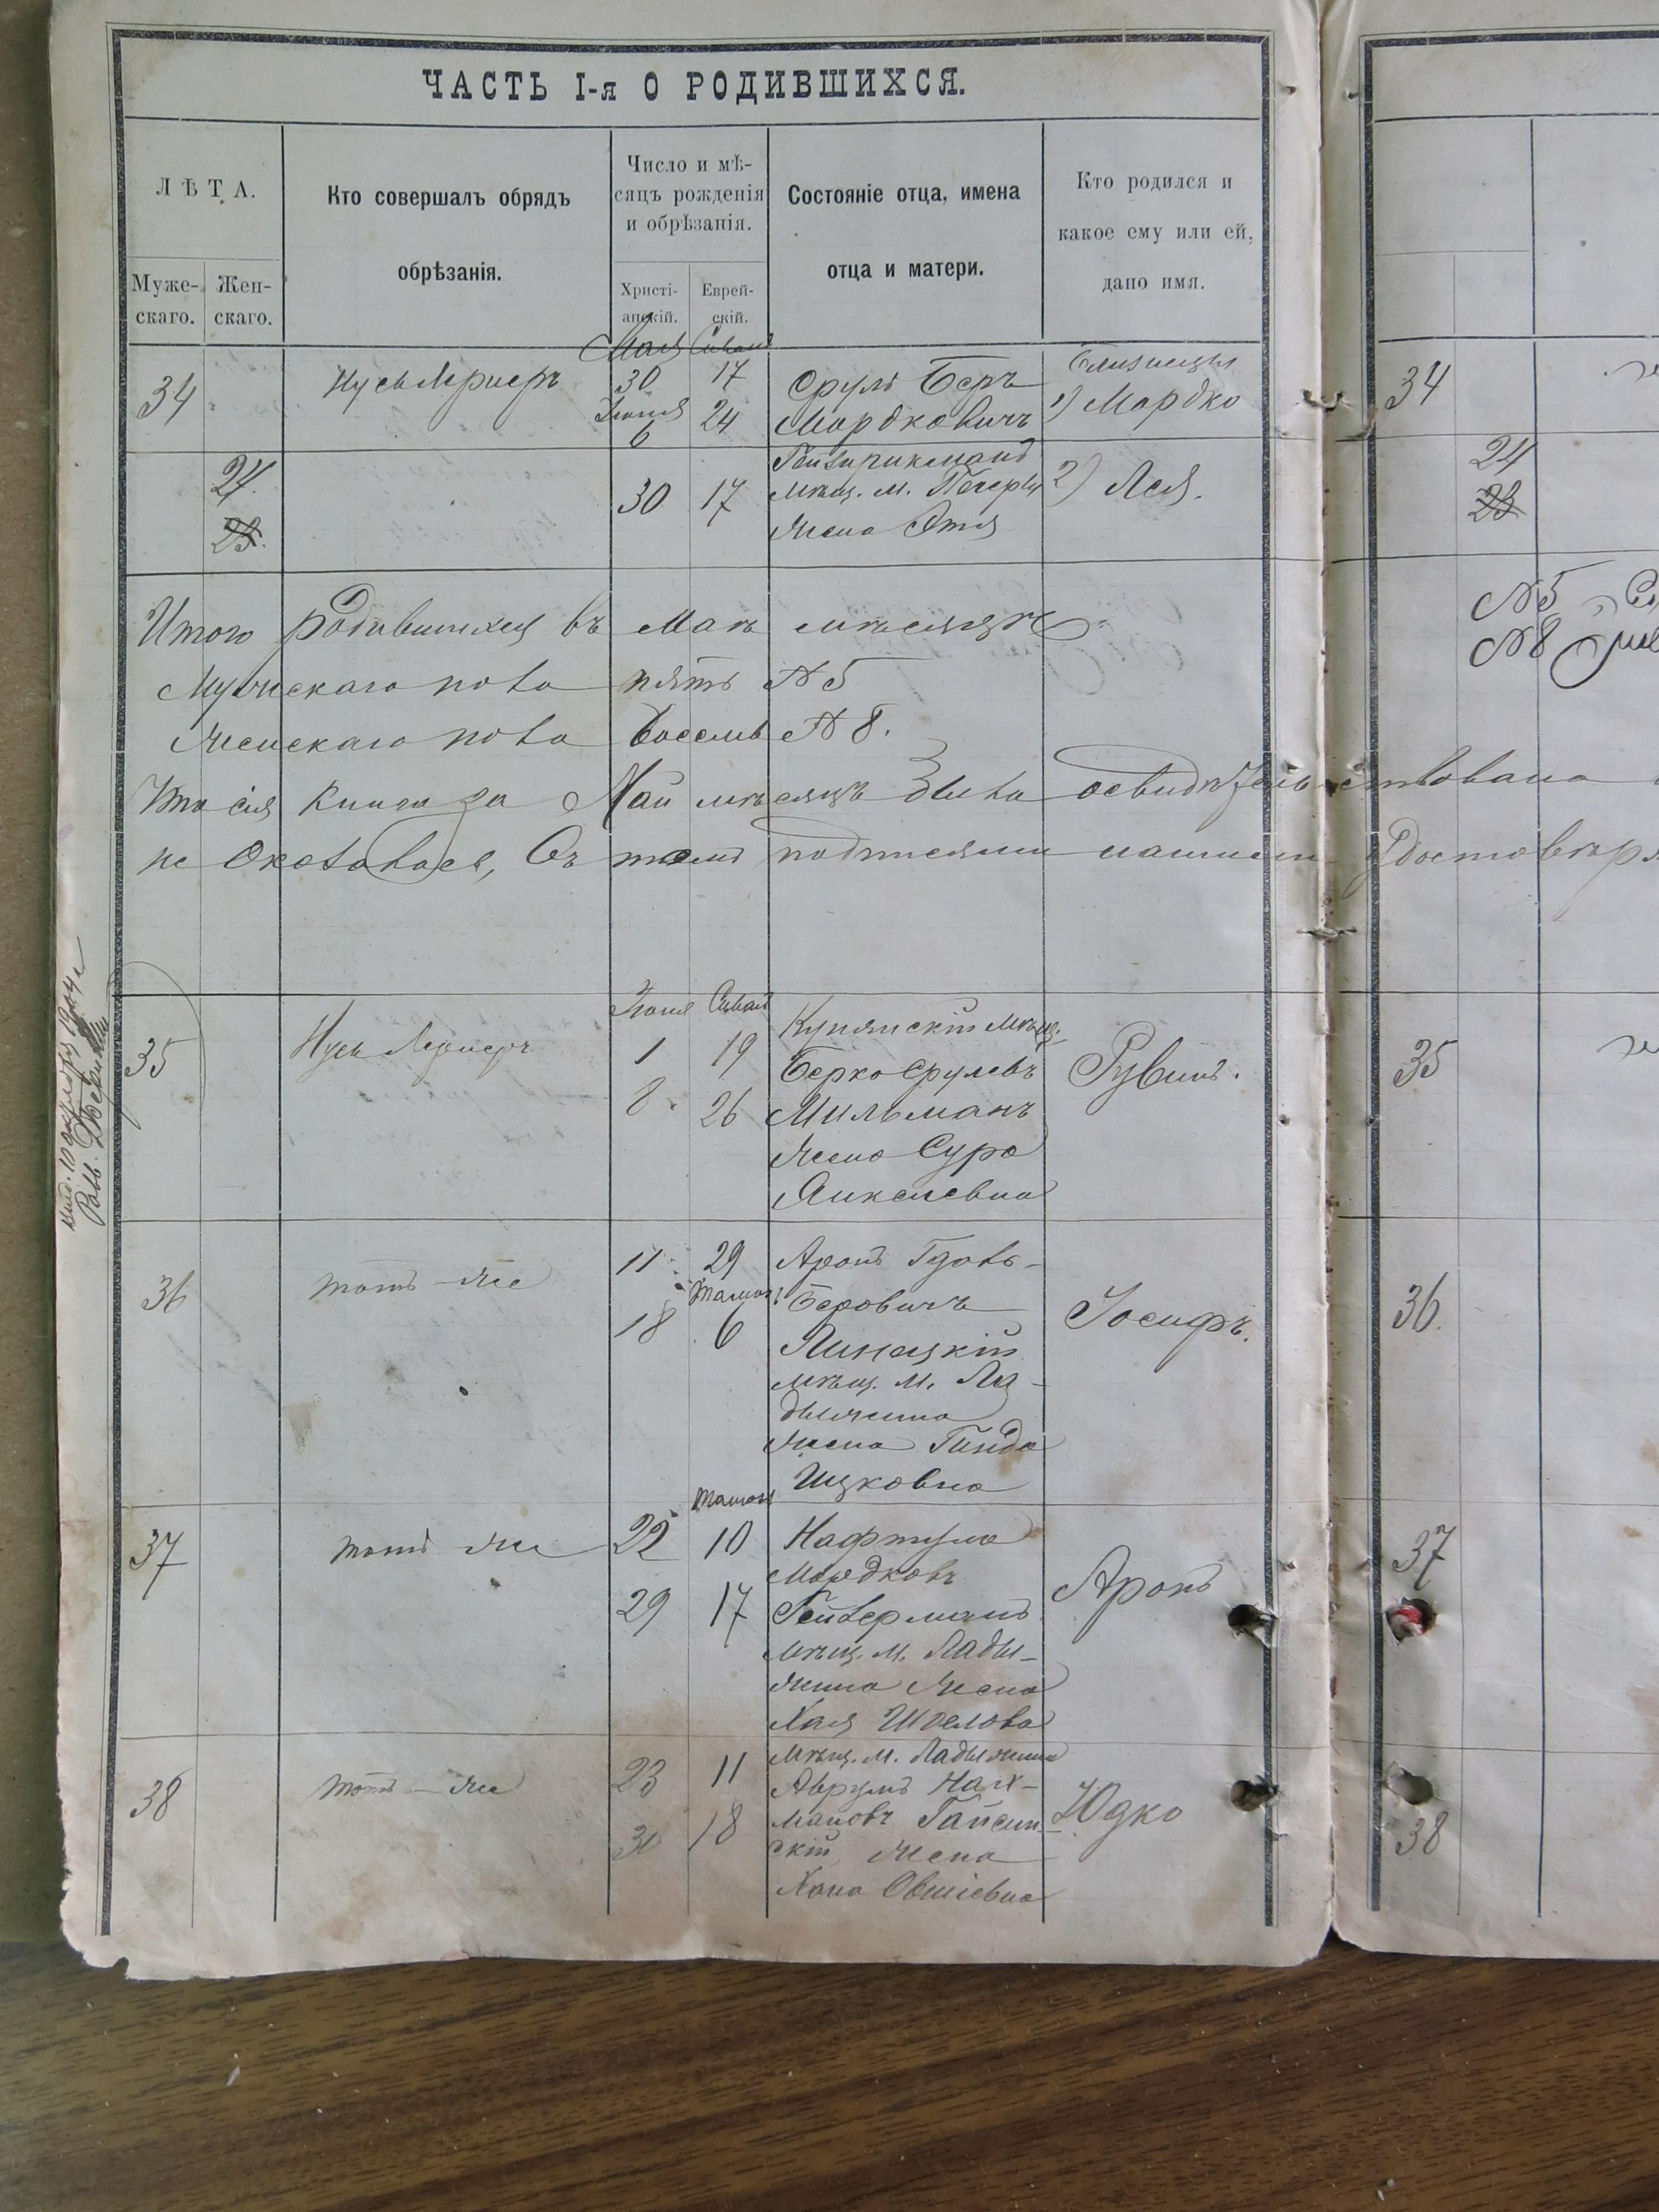 ЧАСТЬ I-я О РОДИВШИХСЯ.
ЛѢТА.
Муже-
скаго.
Жен-
скаго.
Кто совершалъ обрядъ
обрѣзанія.
Число и мѣ-
сяцъ рожденія
и обрѣзанія.
Христі-
анскій.
Еврей-
скій.
Состояніе отца, имена
отца и матери.
Кто родился и
какое ему или ей,
дано имя.
Мая Сивана
34
Нусь Лернеръ
30 17
Іюня
6 24
Сруль Беръ
Мордковичъ
Близнецы
1) Мордко
34
24
23
30 17
мѣщ. м. Печеры
жена Этя
2) Лея.
24
23
Итого родившихся въ Маѣ мѣсяцѣ
Мужескаго пола пять № 5
Женскаго пола восемь № 8.
№ 5
№ 8
Что сія книга за Май мѣсяцъ была освидѣтельствована
не оказалось, въ томъ подписями нашими удостовѣря
35
Нусь Лернеръ
Іюня Сивана
1 19
8 26
Купянскій мѣщ.
Берко Срулевъ
Мильманъ
жена Сура
Янкелевна
Рувинъ.
35
36
тотъ-же
11 29
Тамузъ
18 6
Аронъ Гдаль-
Беровичъ
Липецкій
мѣщ. м. Ла-
дыжина
жена Гинда
Ицковна
Іосифъ.
36.
37
тотъ же
Тамузъ
22 10
29 17
Нафтула
Мордковъ
Гейверманъ
мѣщ. м. Лады-
жина жена
Хая
Аронъ
37
38
тотъ-же
23 11
30 18
мѣщ. м. Ладыжина
Аврумъ Нах-
мановъ Гайсин-
скій, жена
Хана Овшіевна
Юдко
38